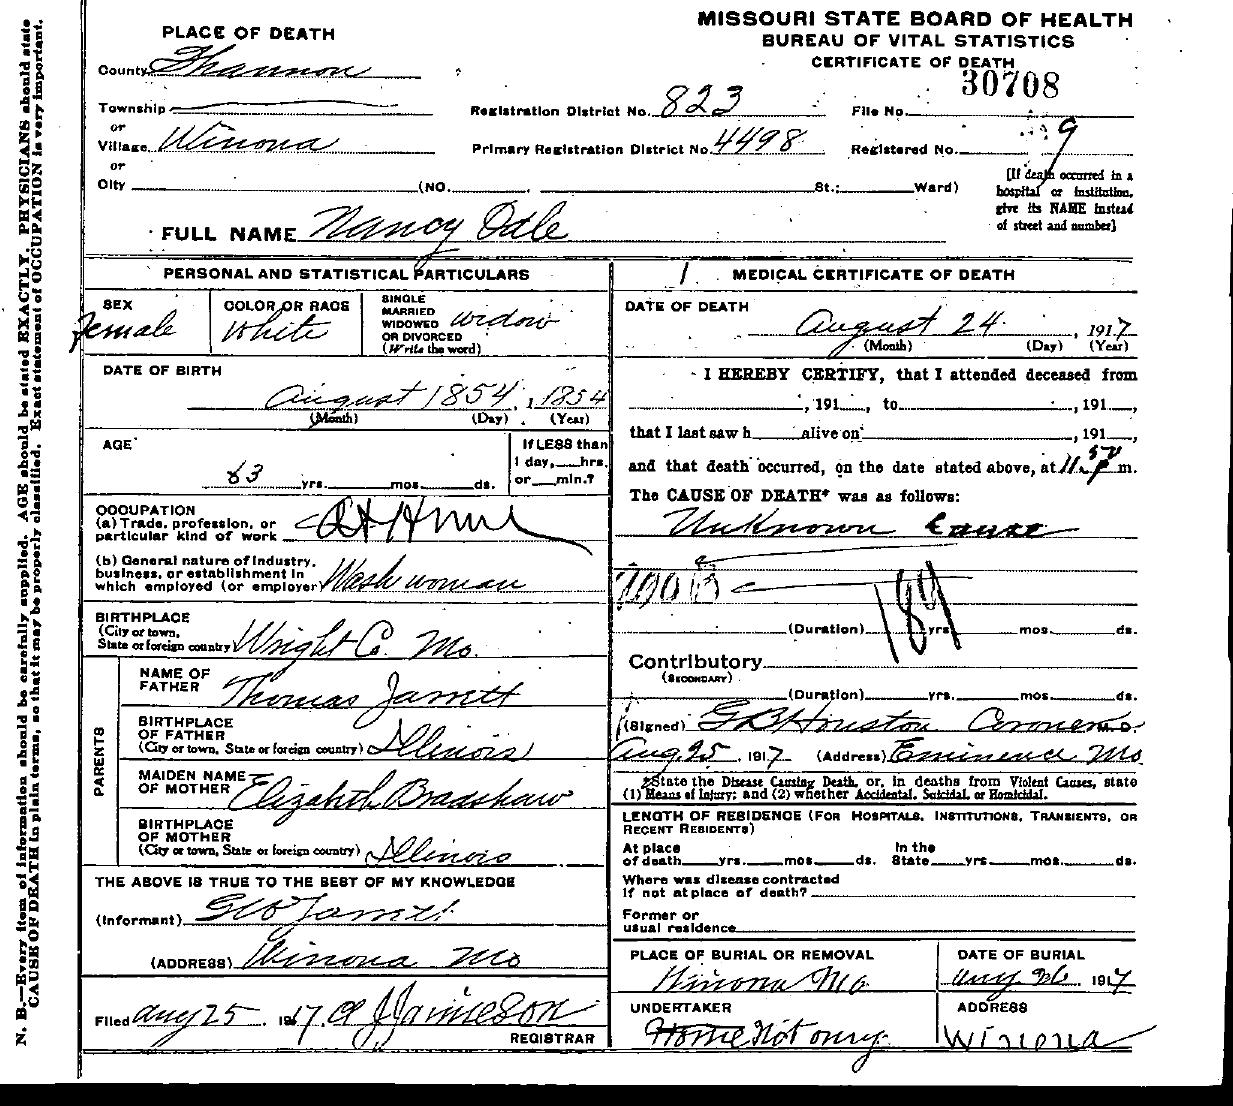 MISSOURI STATE BOARD OF HEALTH
BUREAU OF VITAL STATISTICS
CERTIFICATE OF DEATH
PLACE OF DEATH
County Shannon
Township
or
Village Winona
or
City (NO. St.; Ward)
Registration District No. 823
File No. 30708
Primary Registration District No. 4498
Registered No. 9
[If death occurred in a
hospital or institution,
give its NAME instead
of street and number]
FULL NAME Nancy Odle
PERSONAL AND STATISTICAL PARTICULARS
SEX
Female
COLOR OR RACE
White
SINGLE
MARRIED
WIDOWED
OR DIVORCED
(Write the word)
widow
DATE OF BIRTH
August 1854, 1854
(Month) (Day) (Year)
AGE
63 yrs. mos. ds.
If LESS than
1 day, hrs.
or min.?
OCCUPATION
(a) Trade, profession, or
particular kind of work At Home
(b) General nature of industry,
business, or establishment in
which employed (or employer) Wash woman
BIRTHPLACE
(City or town,
State or foreign country) Wright Co. Mo.
PARENTS
NAME OF
FATHER Thomas Jarrett
BIRTHPLACE
OF FATHER
(City or town, State or foreign country) Illinois
MAIDEN NAME
OF MOTHER Elizabeth Bradshaw
BIRTHPLACE
OF MOTHER
(City or town, State or foreign country) Illinois
THE ABOVE IS TRUE TO THE BEST OF MY KNOWLEDGE
(Informant) Geo Jarrett
(ADDRESS) Winona Mo
Filed Aug 25, 1917. J Jamieson
REGISTRAR
MEDICAL CERTIFICATE OF DEATH
DATE OF DEATH
August 24, 1917
(Month) (Day) (Year)
I HEREBY CERTIFY, that I attended deceased from
, 191 , to , 191 ,
that I last saw h alive on , 191 ,
and that death occurred, on the date stated above, at 11.50 P m.
The CAUSE OF DEATH* was as follows:
Unknown Cause
189
(Duration) yrs. mos. ds.
Contributory
(SECONDARY)
(Duration) yrs. mos. ds.
(Signed) G B Houston Coroner M.D.
Aug. 25, 1917 (Address) Eminence Mo
*State the Disease Causing Death, or, in deaths from Violent Causes, state
(1) Means of Injury; and (2) whether Accidental, Suicidal, or Homicidal.
LENGTH OF RESIDENCE (FOR HOSPITALS, INSTITUTIONS, TRANSIENTS, OR
RECENT RESIDENTS)
At place
of death yrs. mos. ds.
In the
State yrs. mos. ds.
Where was disease contracted
if not at place of death?
Former or
usual residence
PLACE OF BURIAL OR REMOVAL
Winona Mo
DATE OF BURIAL
Aug 26 1917
UNDERTAKER
Home Not any
ADDRESS
Winona
N. B.—Every item of information should be carefully supplied. AGE should be stated EXACTLY. PHYSICIANS should state
CAUSE OF DEATH in plain terms, so that it may be properly classified. Exact statement of OCCUPATION is very important.